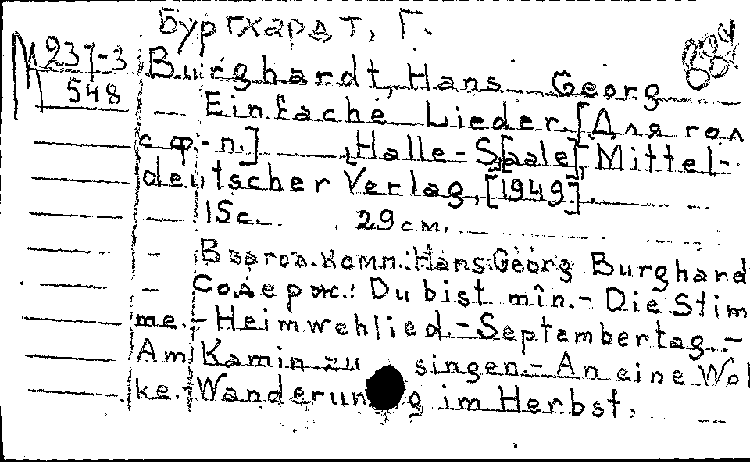 Бургхардт, Г.
М 237-3
548
Burghardt, Hans Georg
Einfache Lieder. [Для гол.
с ф.-п.] [Halle-S[aale], Mittel-
deutscher Verlag, [1949].
15с. 29 см.
В загол. комп.: Hans Georg Burghard
Содерж.: Du bist mîn.- Die Stim
me.- Heimwehlied.- Septembertag.-
Am Kamin zu singen.- An eine Wol
ke.- Wanderung im Herbst.